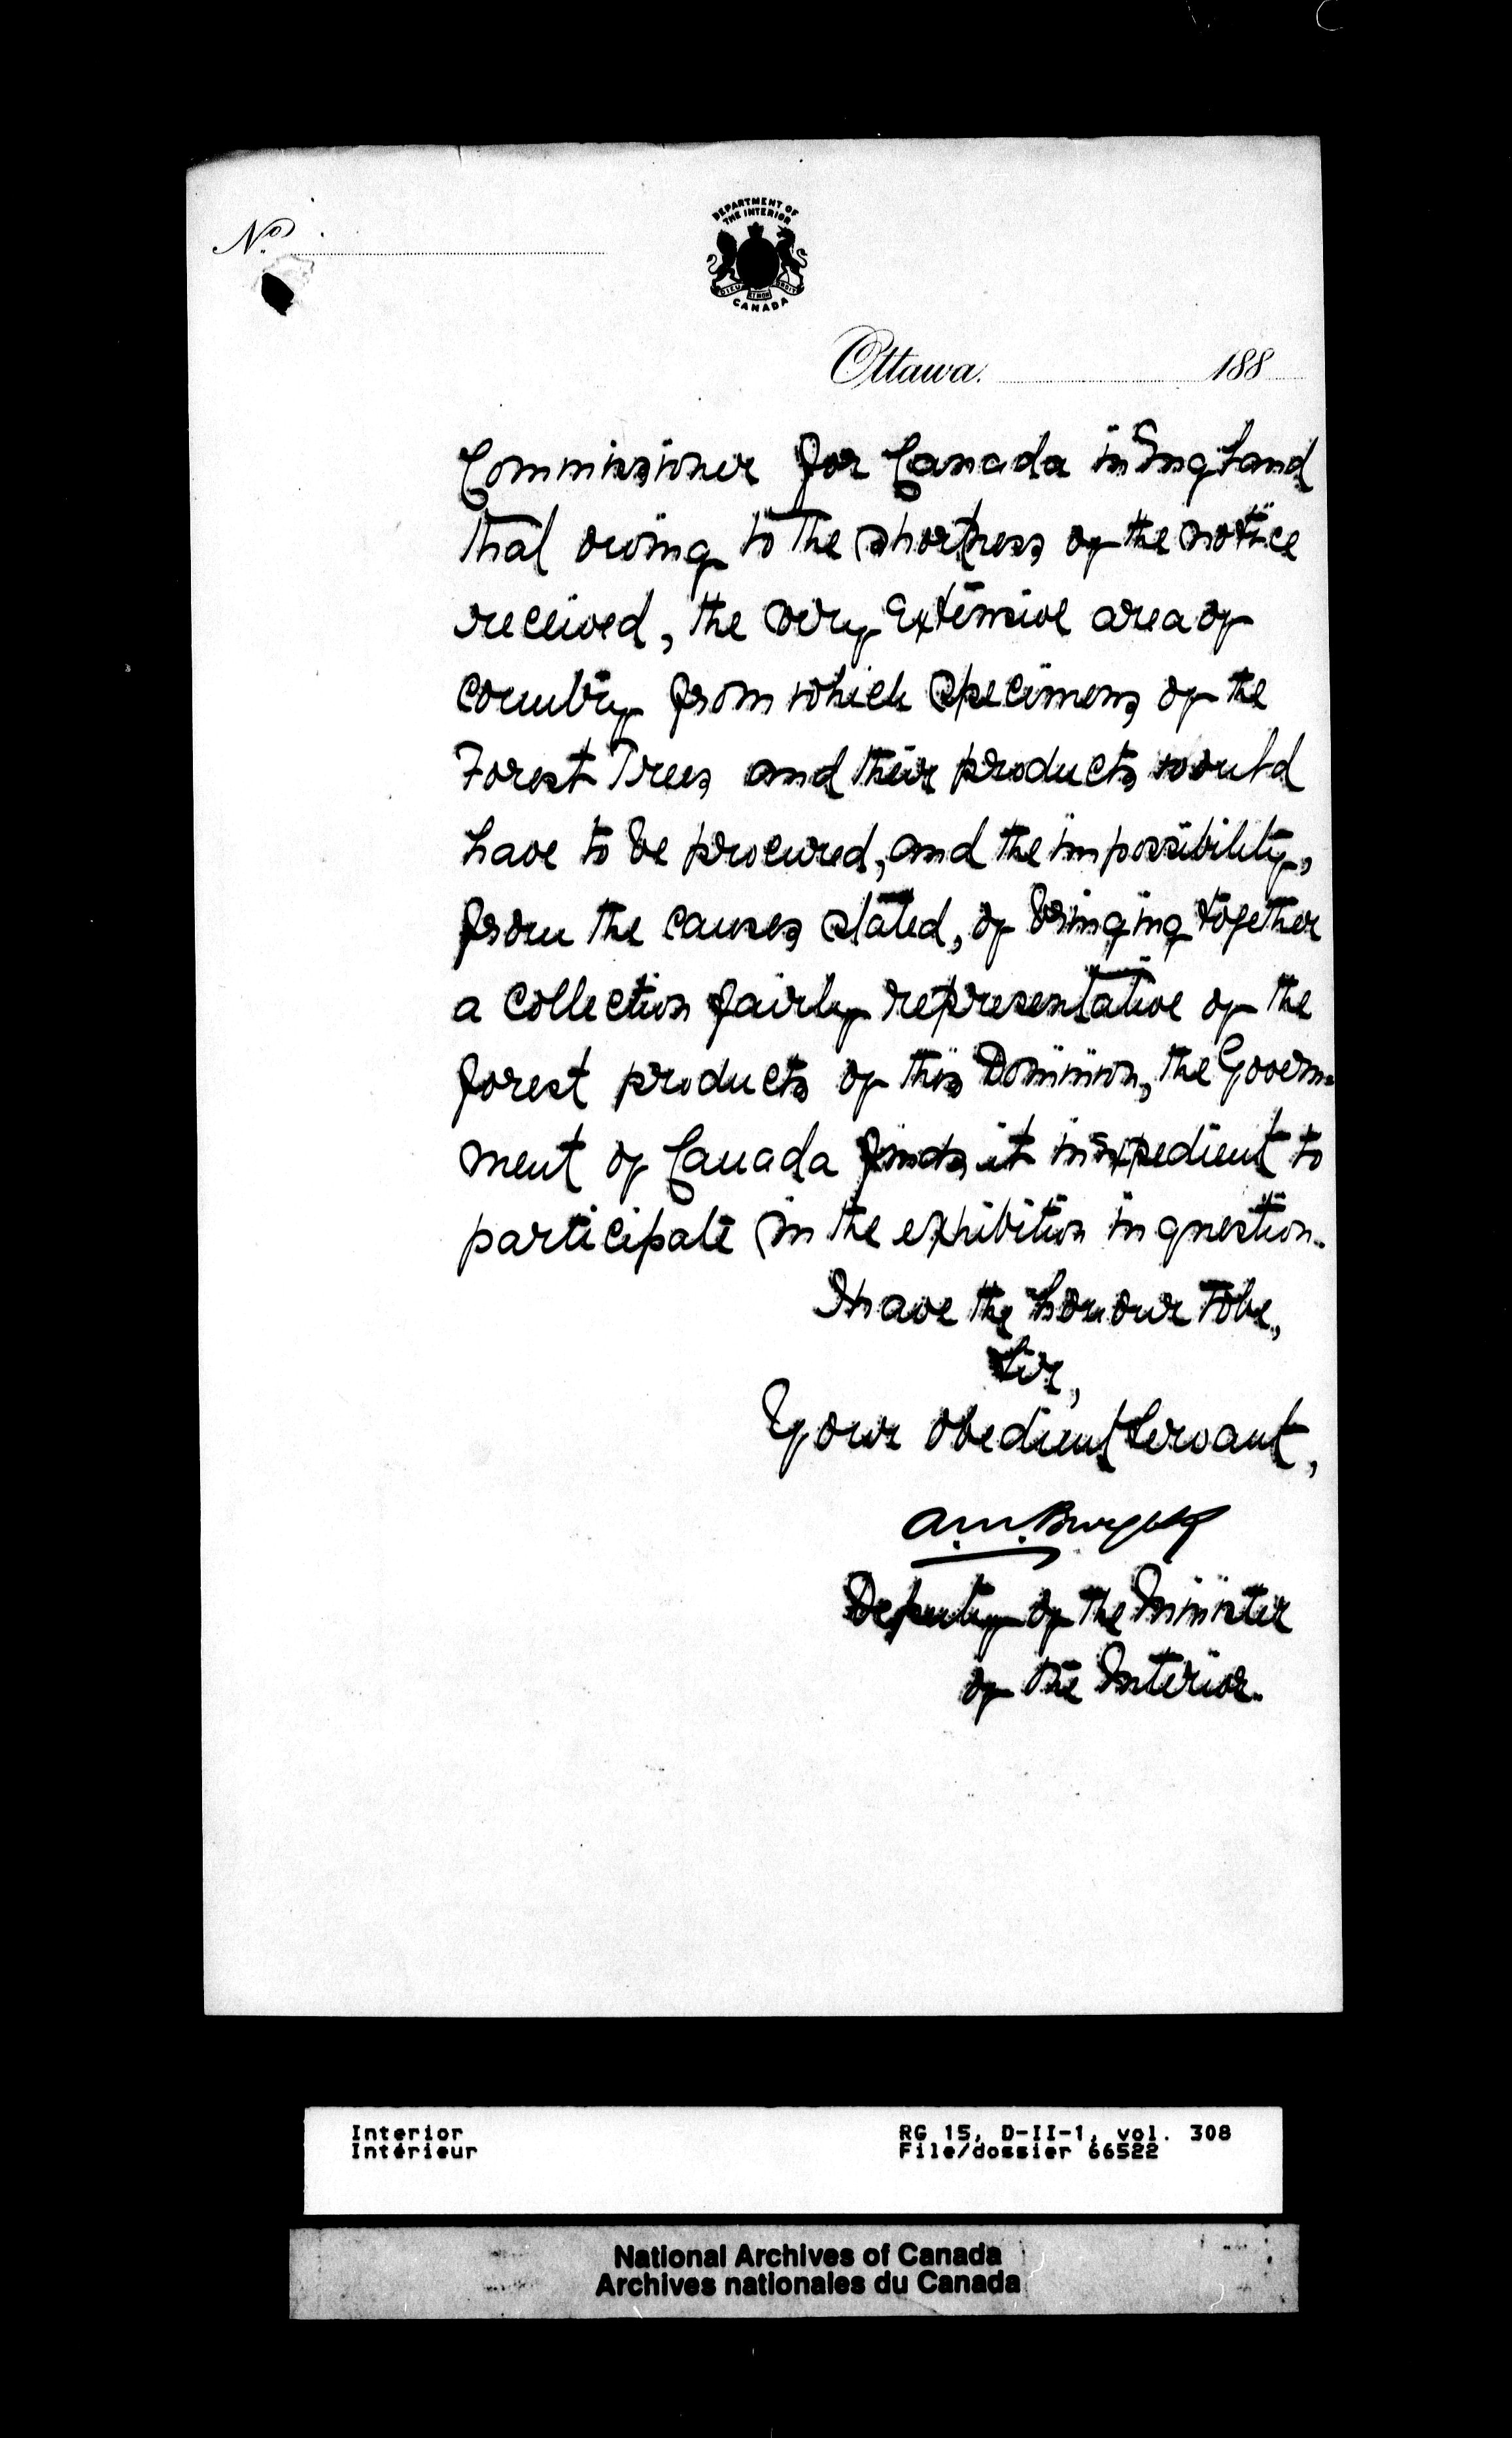 No.
DEPARTMENT OF
THE INTERIOR
DIEU ET MON DROIT
CANADA
Ottawa. 188
Commissioner for Canada in England
that owing to the shortness of the notice
received, the very extensive area of
country from which specimens of the
Forest Trees and their products would
have to be procured, and the impossibility,
from the causes stated, of bringing together
a collection fairly representative of the
forest products of this Dominion, the Govern-
ment of Canada finds it inexpedient to
participate in the exhibition in question.
I have the honour to be,
Sir,
Your obedient Servant,
A.M. Burgess
Deputy of the Minister
of the Interior.
Interior RG 15, D-II-1, vol. 308
Intérieur File/dossier 66522
National Archives of Canada
Archives nationales du Canada